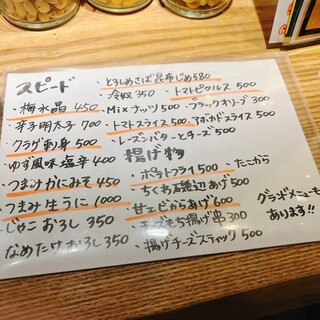 スピード
・梅水晶 450
・辛子明太子 700
・クラゲ刺身 500
・ゆず風味塩辛 400
・つまみかにみそ 450
・つまみ生うに 1000
・じゃこおろし 350
・なめたけおろし 350
・とろしめさば昆布じめ 580
・冷奴 350
・トマトピクルス 500
・Mixナッツ 500
・ブラックオリーブ 300
・トマトスライス 500
・アボカドスライス 500
・レーズンバターとチーズ 500
揚げ物
・ポテトフライ 500
・たこから
・ちくわ磯辺あげ 500
・甘エビからあげ 600
・チーズもち揚げ串 300
・揚げチーズスティック 500
グランドメニューも
あります!!